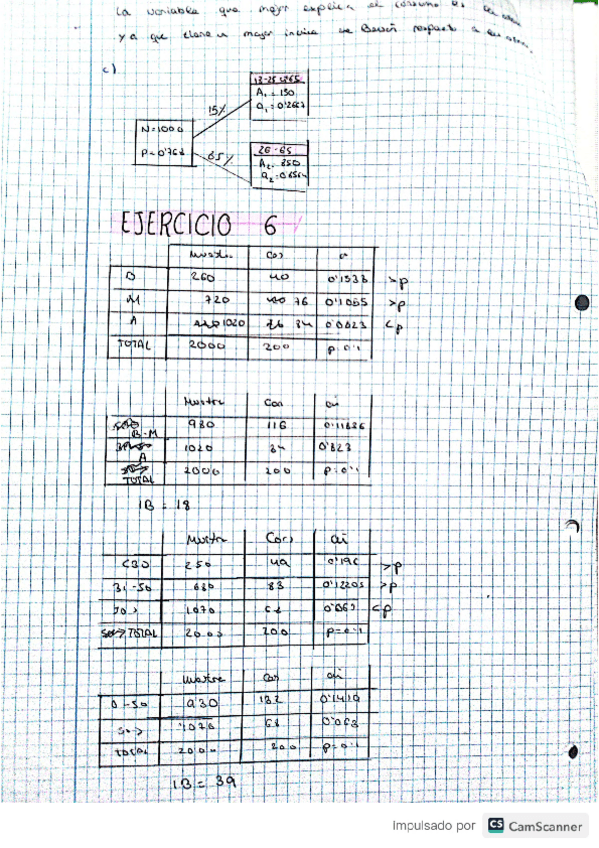 La variable que mejor explica el consumo es la
ya que tiene un mejor indice de Belson respecto a
c)
N=1000
P=0'768
15%
85%
A₁=150
26-65
A₂=850
EJERCICIO 6
Muestra Con ai
B 260 40 0'1538 >p
M 720 76 0'1055 >p
A 1020 84 0'0823 <p
TOTAL 2000 200 p=0'1
Muestra Con ai
B-M 980 116 0'11836
A 1020 84 0'823
TOTAL 2000 200 p=0'1
IB = 18
Muestra Con ai
<30 250 49 0'196 >p
31-50 680 83 0'12205 >p
50> 1070 68 <p
TOTAL 2000 200 p=0'1
Muestra Con ai
0-50 930 132 0'1419
50> 1070 68 0'063
TOTAL 2000 200 p=0'1
IB = 39
Impulsado por CS CamScanner